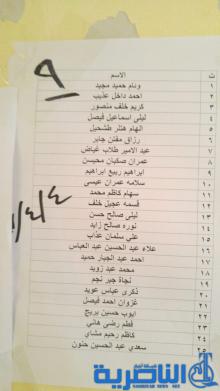 ٩
ت الاسم
١ وئام حميد مجيد
٢ احمد داخل عذيب
٣ كريم خلف منصور
٤ ليلى اسماعيل فيصل
٥ الهام هنلر طشحيل
٦ رزاق مفتن جابر
٧ عبد الامير طلاب غياض
٨ عمران صكبان محيسن
٩ ابراهيم ربيع ابراهيم
١٠ سلامه عمران عيسى
١١ سهام كاظم محمد
١٢ قسمه عجيل خلف
١٣ ليلى صالح حسن
١٤ نوره صالح زايد
١٥ علي سلمان عذاب
١٦ علاء عبد الحسين عبد العباس
١٧ احمد عبد الجبار حميد
١٨ محمد عبد زويد
١٩ نجاة جبر نجم
٢٠ ذكرى عباس عويد
٢١ غزوان احمد فيصل
٢٢ ايوب حسين بريج
٢٣ فطم رضي هاني
٢٤ كاظم رحيم مشاي
٢٥ سعدي عبد الحسين حنون
الناصرية